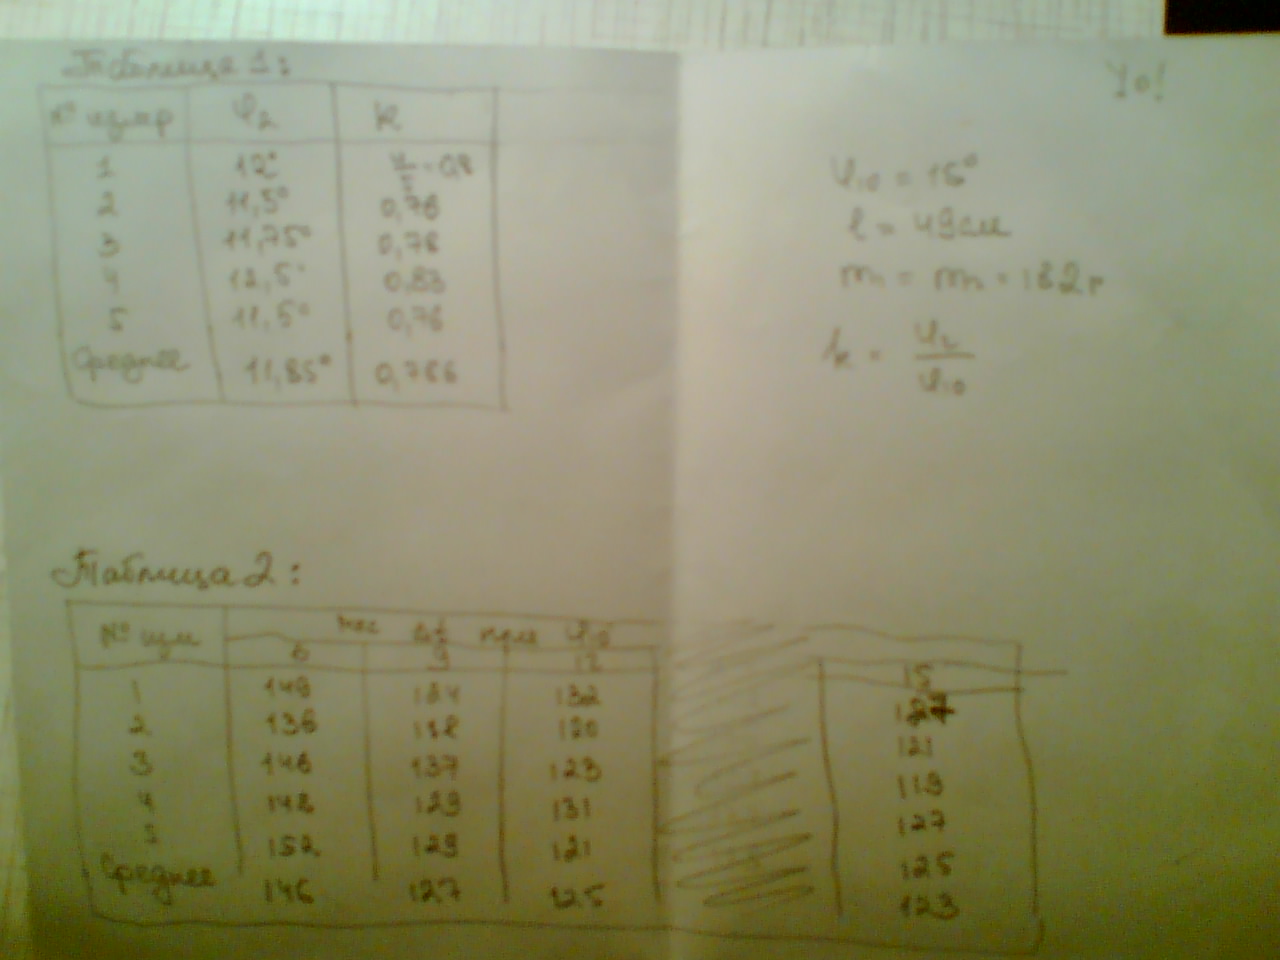 Таблица 1:
Yo!
№ измер φ₂ k
1 12° 0,8
2 11,5° 0,76
3 11,75° 0,78
4 12,5° 0,83
5 11,5° 0,76
Среднее 11,85° 0,786
φ₁₀ = 15°
l = 49см
= 182г
k = φ₂/φ₁₀
Таблица 2:
№ изм Δt при φ₁₀
6 9 12 15
1 149 124 132
2 136 120 121
3 146 137 123 119
4 148 129 131 127
5 152 129 121 125
Среднее 146 127 125 123